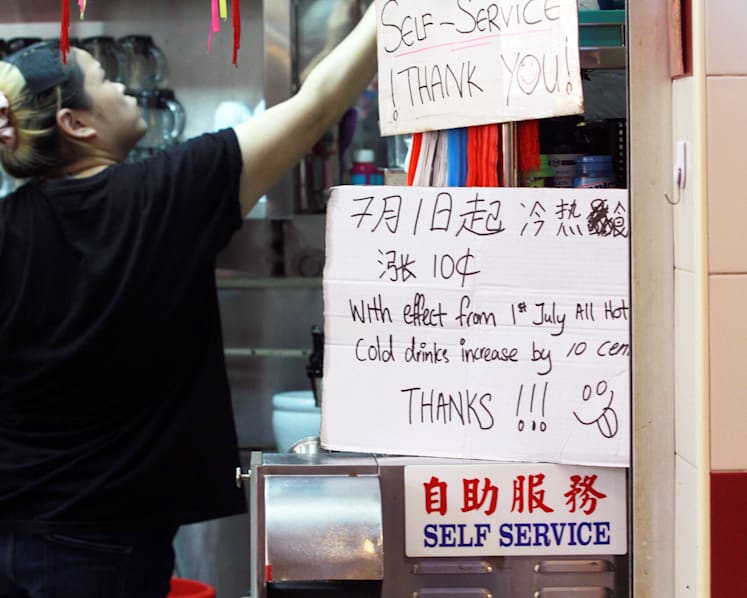 SELF-SERVICE
! THANK YOU !
7月1日起 冷热
涨 10¢
With effect from 1st July All Hot
Cold drinks increase by 10
THANKS !!!
自助服務
SELF SERVICE